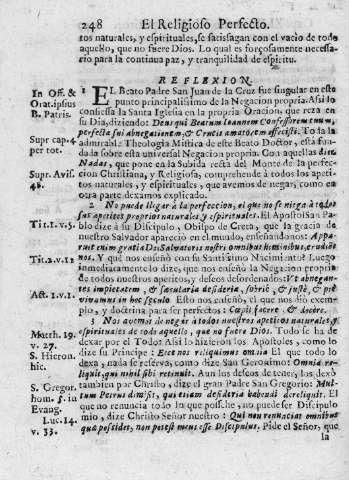 248 El Religioso Perfecto.
tos naturales, y espirituales, se satisfagan con el vacio de todo
aquello, que no fuere Dios. Lo qual es forçosamente necessa-
rio para la continua paz, y tranquilidad de espiritu.
REFLEXION.
In Off. &
Orat. ipsius
B. Patris.
1 EL Beato Padre San Juan de la Cruz fue singular en este
punto principalissimo de la Negacion propria. Assi lo
confiessa la Santa Iglesia en la propria Oracion, que reza en
su Dia, diziendo: Deus qui Beatum Ioannem Confessorem tuum,
perfectæ sui abnegationis, & Crucis amatorem effecisti. Toda la
Supr cap. 4
per tot.
admirable Theologia Mistica de este Beato Doctor, està funda-
da sobre esta universal Negacion propria. Con aquellas diez
Nadas, que pone en la Subida recta del Monte de la perfec-
Supr. Avis.
48.
cion Christiana, y Religiosa, comprehende à todos los apeti-
tos naturales, y espirituales, que avemos de negar, como en
otra parte dexamos explicado.
2 No puede llegar à la perfeccion, el que no se niega à todos
sus apetitos proprios naturales y espirituales. El Apostol San Pa-
Tit. 1. v. 5.
blo dize à su Discipulo, Obispo de Creta, que la gracia de
nuestro Salvador apareciò en el mundo, enseñandonos: Appa-
ruit enim gratia Dei Salvatoris nostri omnibus hominibus, erudiens
Tit. 2. v. 12
nos. Y què nos enseñò con su Santissimo Nacimiento? Luego
inmediatamente lo dize, que nos enseñò la Negacion propria
de todos nuestros apetitos, y deseos desordenados: Vt abnegan-
tes impietatem, & sæcularia desideria, sobriè, & iustè, & piè
Act. 1. v. 1.
vivamus in hoc sæculo. Esto nos enseñò, el que nos diò exem-
plo, y doctrina para ser perfectos: Cæpit facere, & docere.
3 Nos avemos de negar à todos nuestros apetitos naturales, y
Matth. 19.
v. 27.
espirituales de todo aquello, que no fuere Dios. Todo se ha de
dexar por el Todo: Assi lo hizieron los Apostoles, como lo
S. Hieron.
hic.
dize su Principe: Ecce nos reliquimus omnia. El que todo lo
dexa, nada se reserva, como dize San Geronimo: Omnia re-
liquit, qui nihil sibi retinuit. Aun los deseos de tener, los dexò
S. Gregor.
hom. 5. in
Evang.
tambien por Christo, dize el gran Padre San Gregorio: Mul-
tum Petrus dimisit, qui etiam desideria habendi dereliquit. El
que no renuncia todo lo que possehe, no puede ser Discipulo
Luc. 14.
v. 33.
mio, dize Christo Señor nuestro: Qui non renunciat omnibus
quæ possidet, non potest meus esse Discipulus. Pide el Señor, que
la